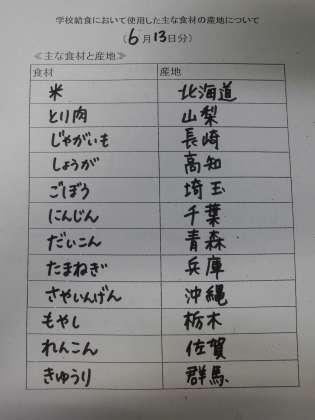 学校給食において使用した主な食材の産地について
(6月13日分)
≪主な食材と産地≫
食材 産地
米 北海道
とり肉 山梨
じゃがいも 長崎
しょうが 高知
ごぼう 埼玉
にんじん 千葉
だいこん 青森
たまねぎ 兵庫
さやいんげん 沖縄
もやし 栃木
れんこん 佐賀
きゅうり 群馬